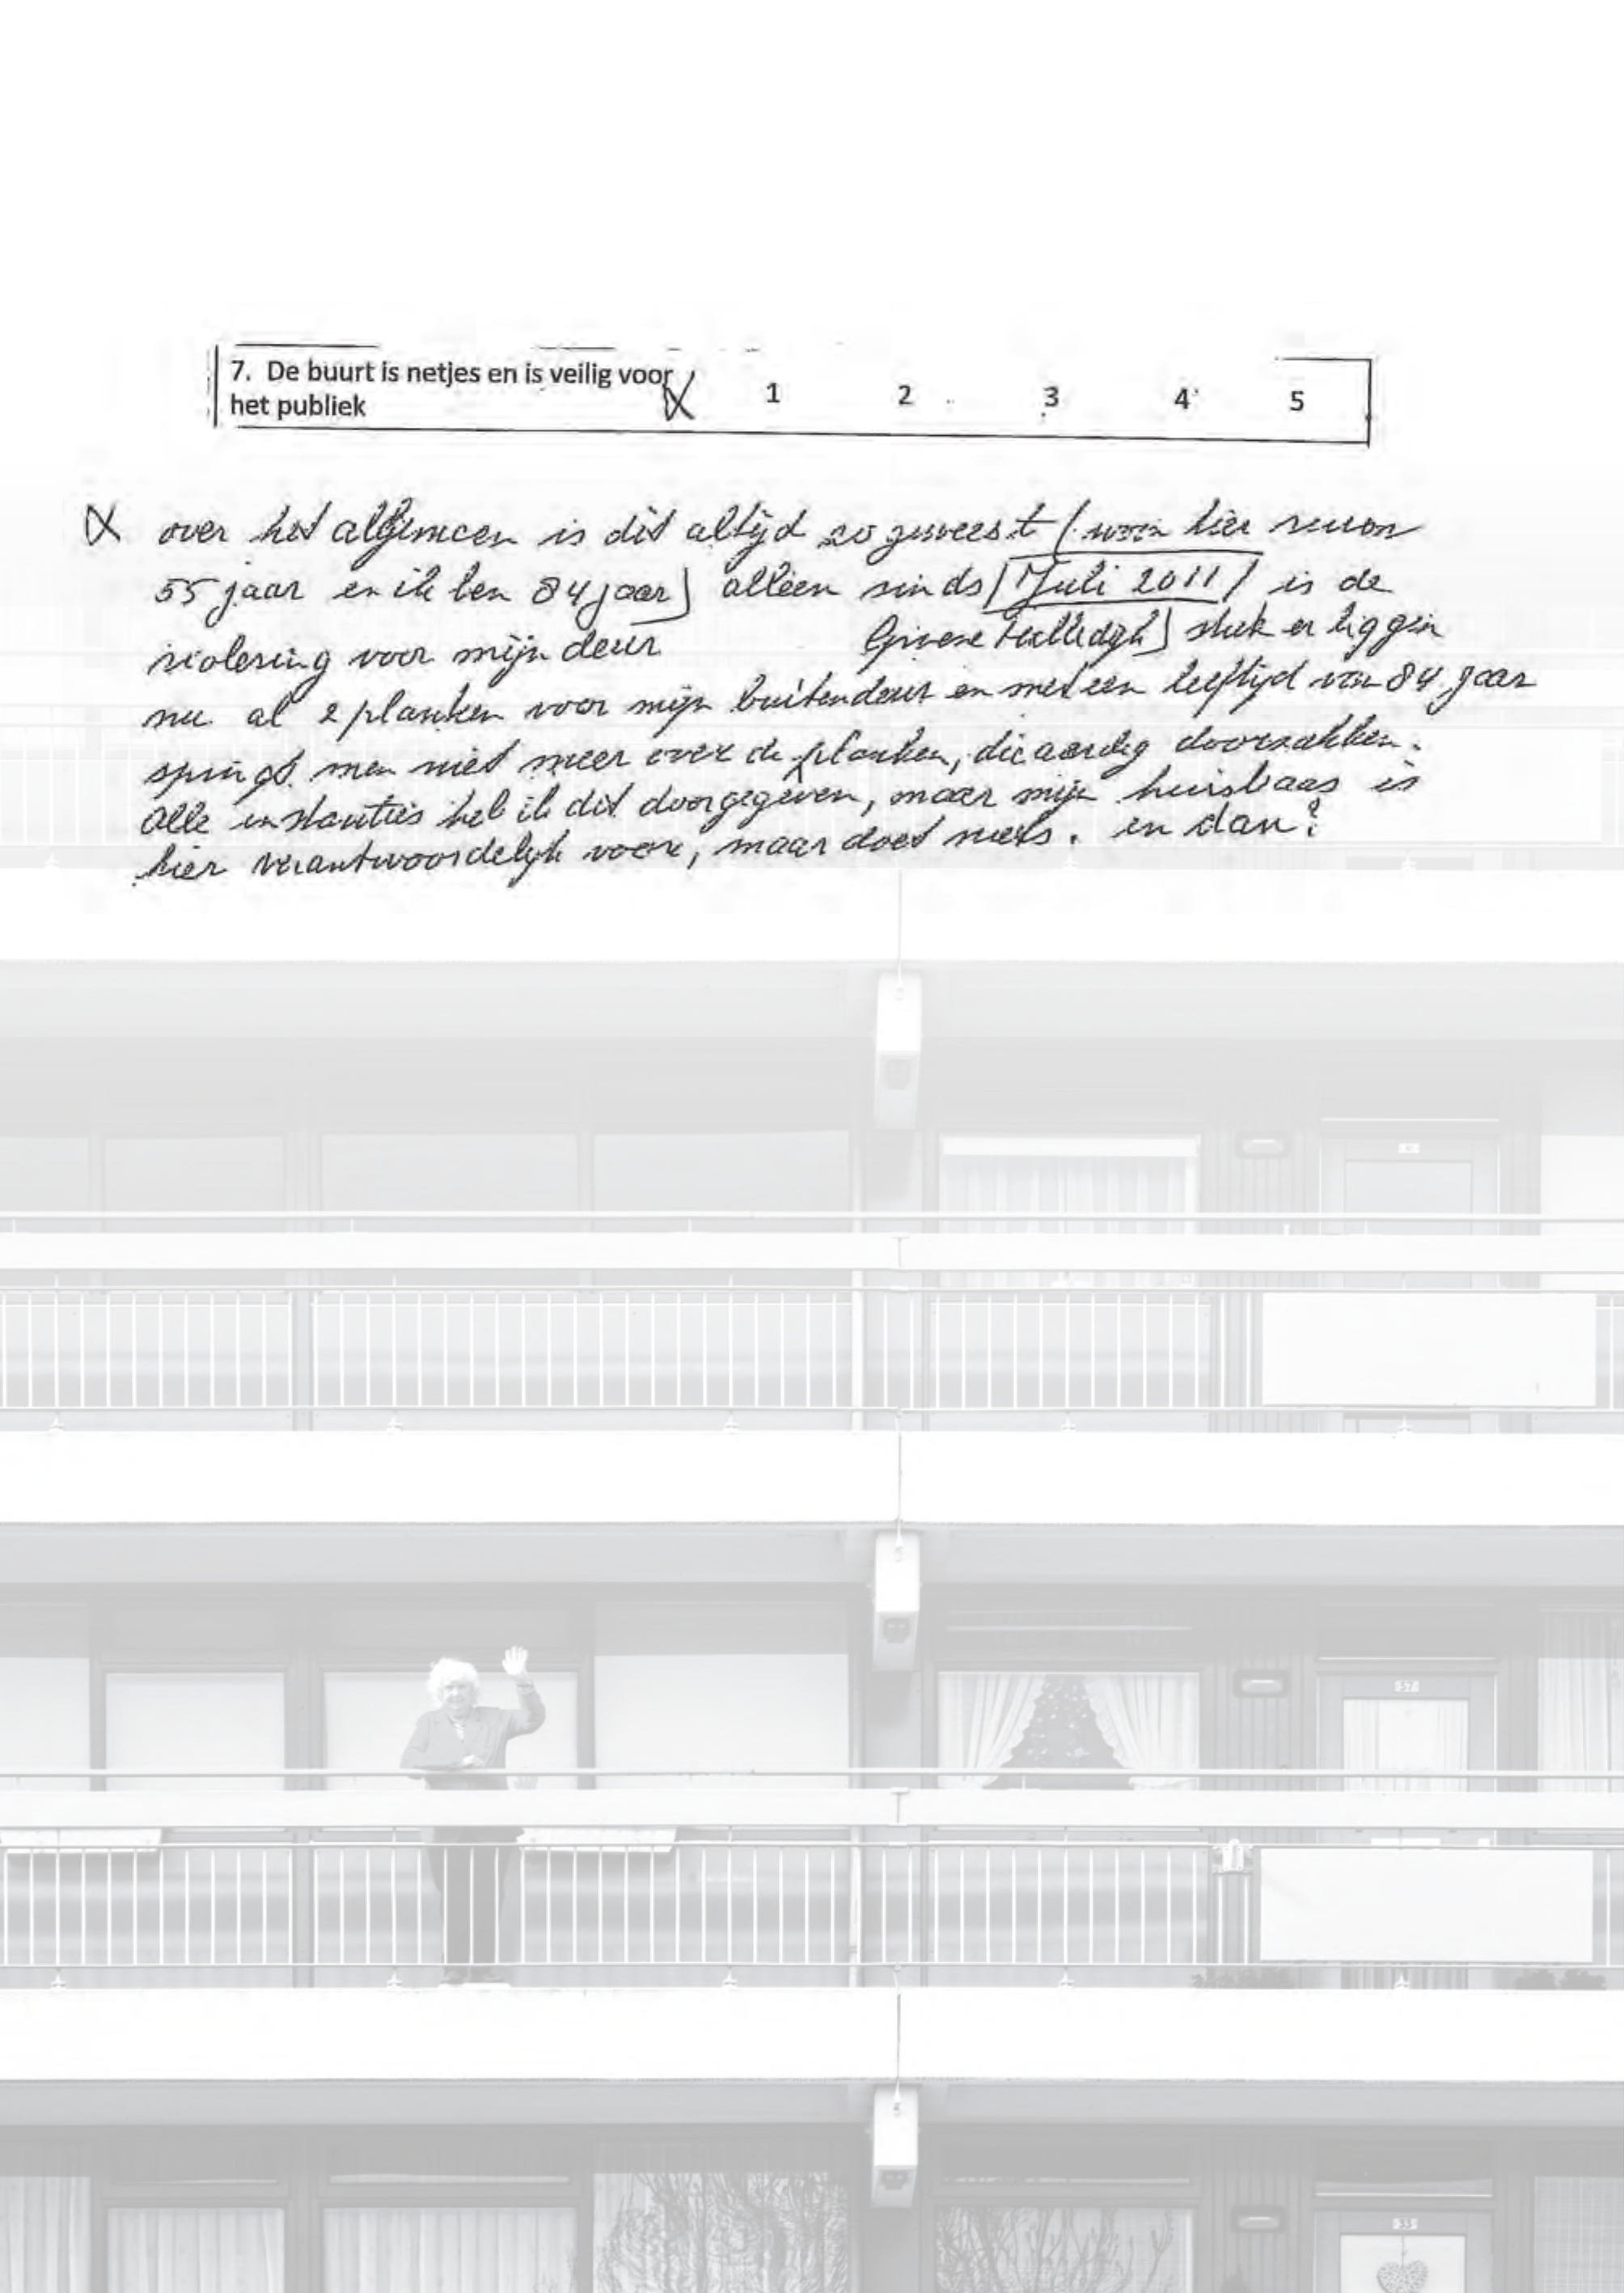 7. De buurt is netjes en is veilig voor
het publiek 1 2 3 4 5
over het algemeen is dit altijd zo geweest (woon hier
55 jaar en ik ben 84 jaar) alleen sinds (Juli 2011) is de
riolering voor mijn deur stuk er liggen
nu al 2 planken voor mijn buitendeur en met een leeftijd van 84 jaar
springt men niet meer over de planken, die aardig doorzakken.
Alle instanties heb ik dit doorgegeven, maar mijn huisbaas is
hier verantwoordelijk voor, maar doet niets. en dan?
57
33